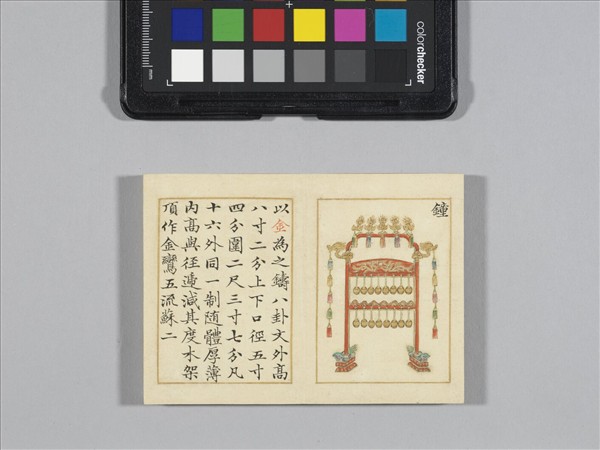 colorchecker
mm
鐘
以金為之鑄八卦文外高
八寸二分上下口徑五寸
四分圍二尺三寸七分凡
十六外同一制随體厚薄
内高與徑遞減其度木架
頂作金鸞五流蘇二